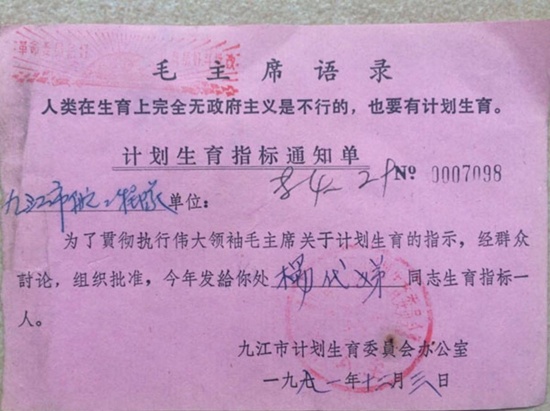 毛主席语录
人类在生育上完全无政府主义是不行的，也要有计划生育。
计划生育指标通知单
№ 0007098
九江市航工程队单位：
为了贯彻执行伟大领袖毛主席关于计划生育的指示，经群众
討论，组织批准，今年发给你处 杨代娣 同志生育指标一
人。
九江市计划生育委員会办公室
一九七一年十二月三日